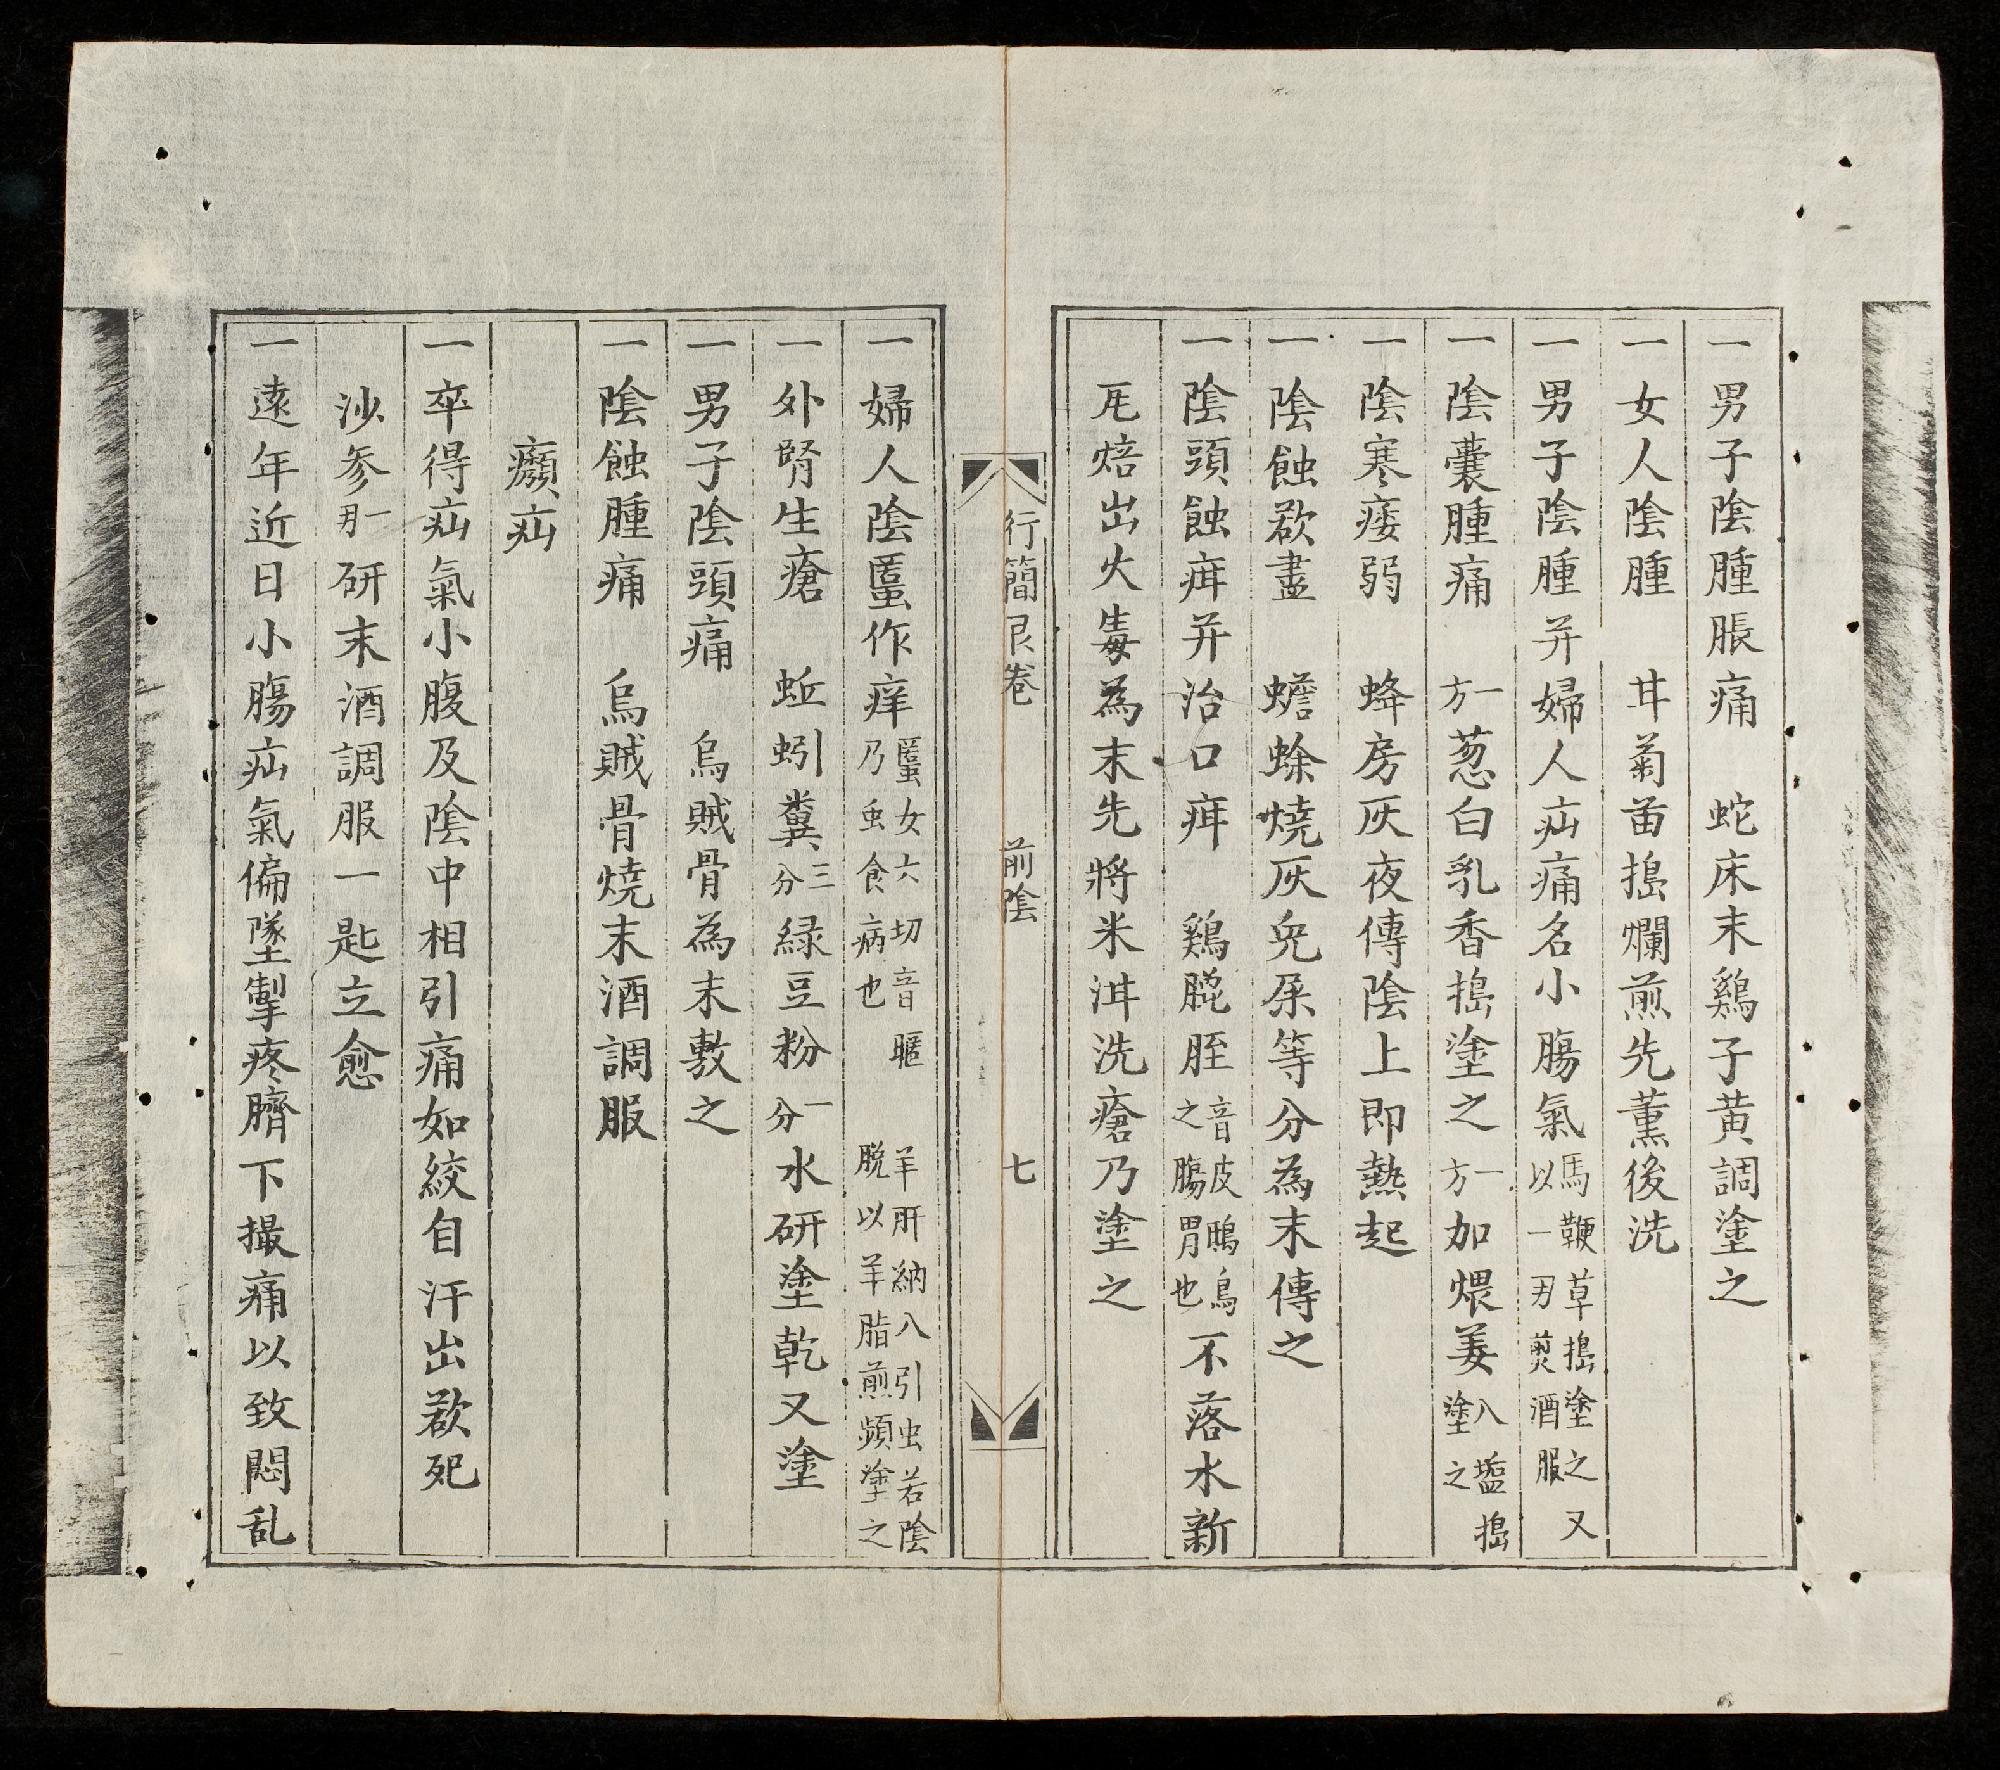 一男子陰腫脹痛　蛇床末鷄子黄調塗之
一女人陰腫　甘菊苗搗爛煎先薰後洗
一男子陰腫并婦人疝痛名小腸氣馬鞭草搗塗之又以一刄煎酒服
一陰囊腫痛　一方葱白乳香搗塗之一方加煨姜入塩搗塗之
一陰寒痿弱　蜂房灰夜傅陰上即熱起
一陰蝕欲盡　蟾蜍燒灰兎屎等分為末傅之
一陰頭蝕疳并治口疳　鷄膍胵音皮鴟鳥之腸胃也不落水新
瓦焙出火毒為末先將米泔洗瘡乃塗之
行簡艮卷　前陰　七
一婦人陰䘌作痒䘌女六切音暱乃虫食病也羊肝納入引虫若陰脫以羊脂煎頻塗之
一外腎生瘡　蚯蚓糞三分綠豆粉一分水研塗乾又塗
一男子陰頭痛　烏賊骨為末敷之
一陰蝕腫痛　烏賊骨燒末酒調服
癩疝
一卒得疝氣小腹及陰中相引痛如絞自汗出欲死
沙参一刄研末酒調服一匙立愈
一遠年近日小腸疝氣偏墜掣疼臍下撮痛以致悶乱